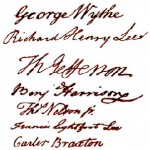 George Wythe
Richard Henry Lee
Th Jefferson
Benj Harrison
Thos Nelson jr.
Francis Lightfoot Lee
Carter Braxton